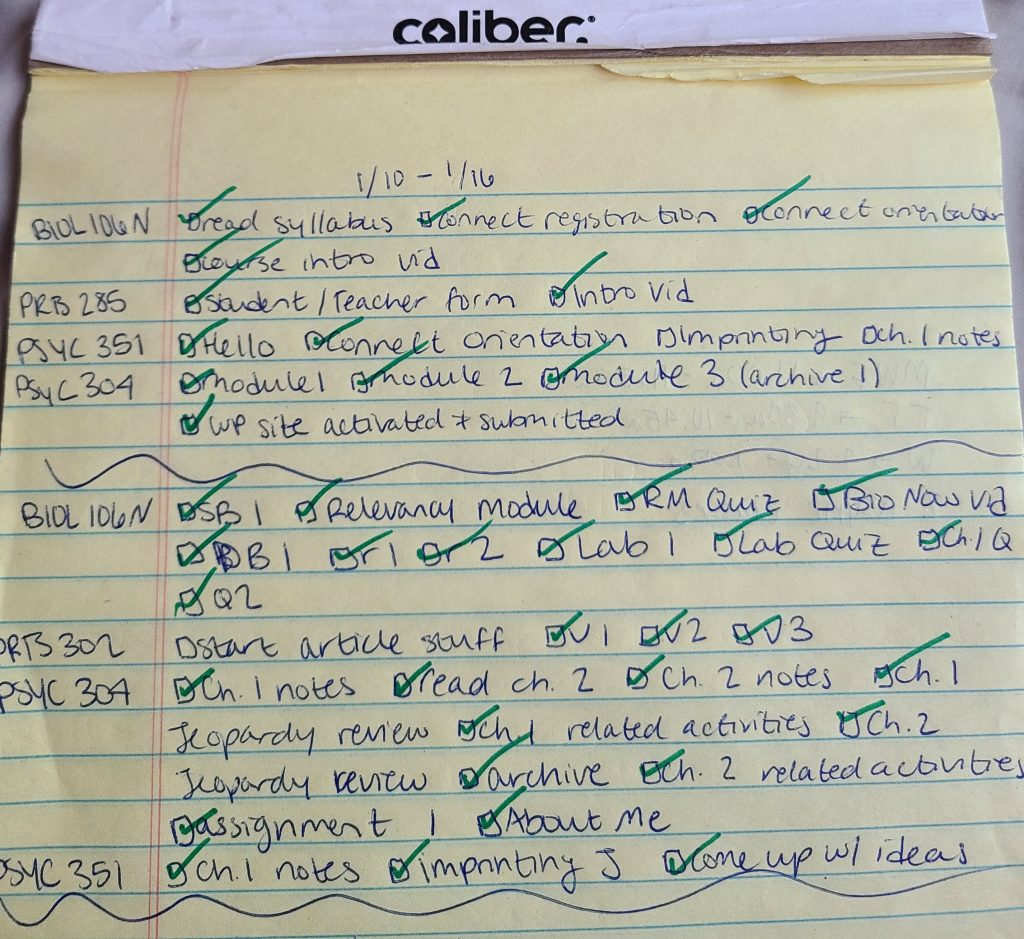 caliber.
1/10 - 1/16
BIOL 106N ☑ read syllabus ☑ connect registration ☑ connect orientation
☑ course intro vid
PRB 285 ☑ Student/Teacher form ☑ Intro vid
PSYC 351 ☑ Hello ☑ Connect orientation ☐ Imprinting ☐ ch. 1 notes
PSYC 304 ☑ module 1 ☑ module 2 ☑ module 3 (archive 1)
☑ WP site activated + submitted
BIOL 106N ☑ SB 1 ☑ Relevancy module ☑ RM Quiz ☑ Bio Now vid
☑ DB 1 ☑ r 1 ☑ r 2 ☑ Lab 1 ☑ Lab Quiz ☑ Ch. 1 Q
☑ Q2
PRB 302 ☐ start article stuff ☑ V1 ☑ V2 ☑ V3
PSYC 304 ☑ Ch. 1 notes ☑ read ch. 2 ☑ Ch. 2 notes ☑ Ch. 1
Jeopardy review ☑ Ch. 1 related activities ☑ Ch. 2
Jeopardy review ☑ archive ☑ Ch. 2 related activities
☑ assignment 1 ☑ About Me
PSYC 351 ☑ Ch. 1 notes ☑ imprinting J ☑ Come up w/ ideas